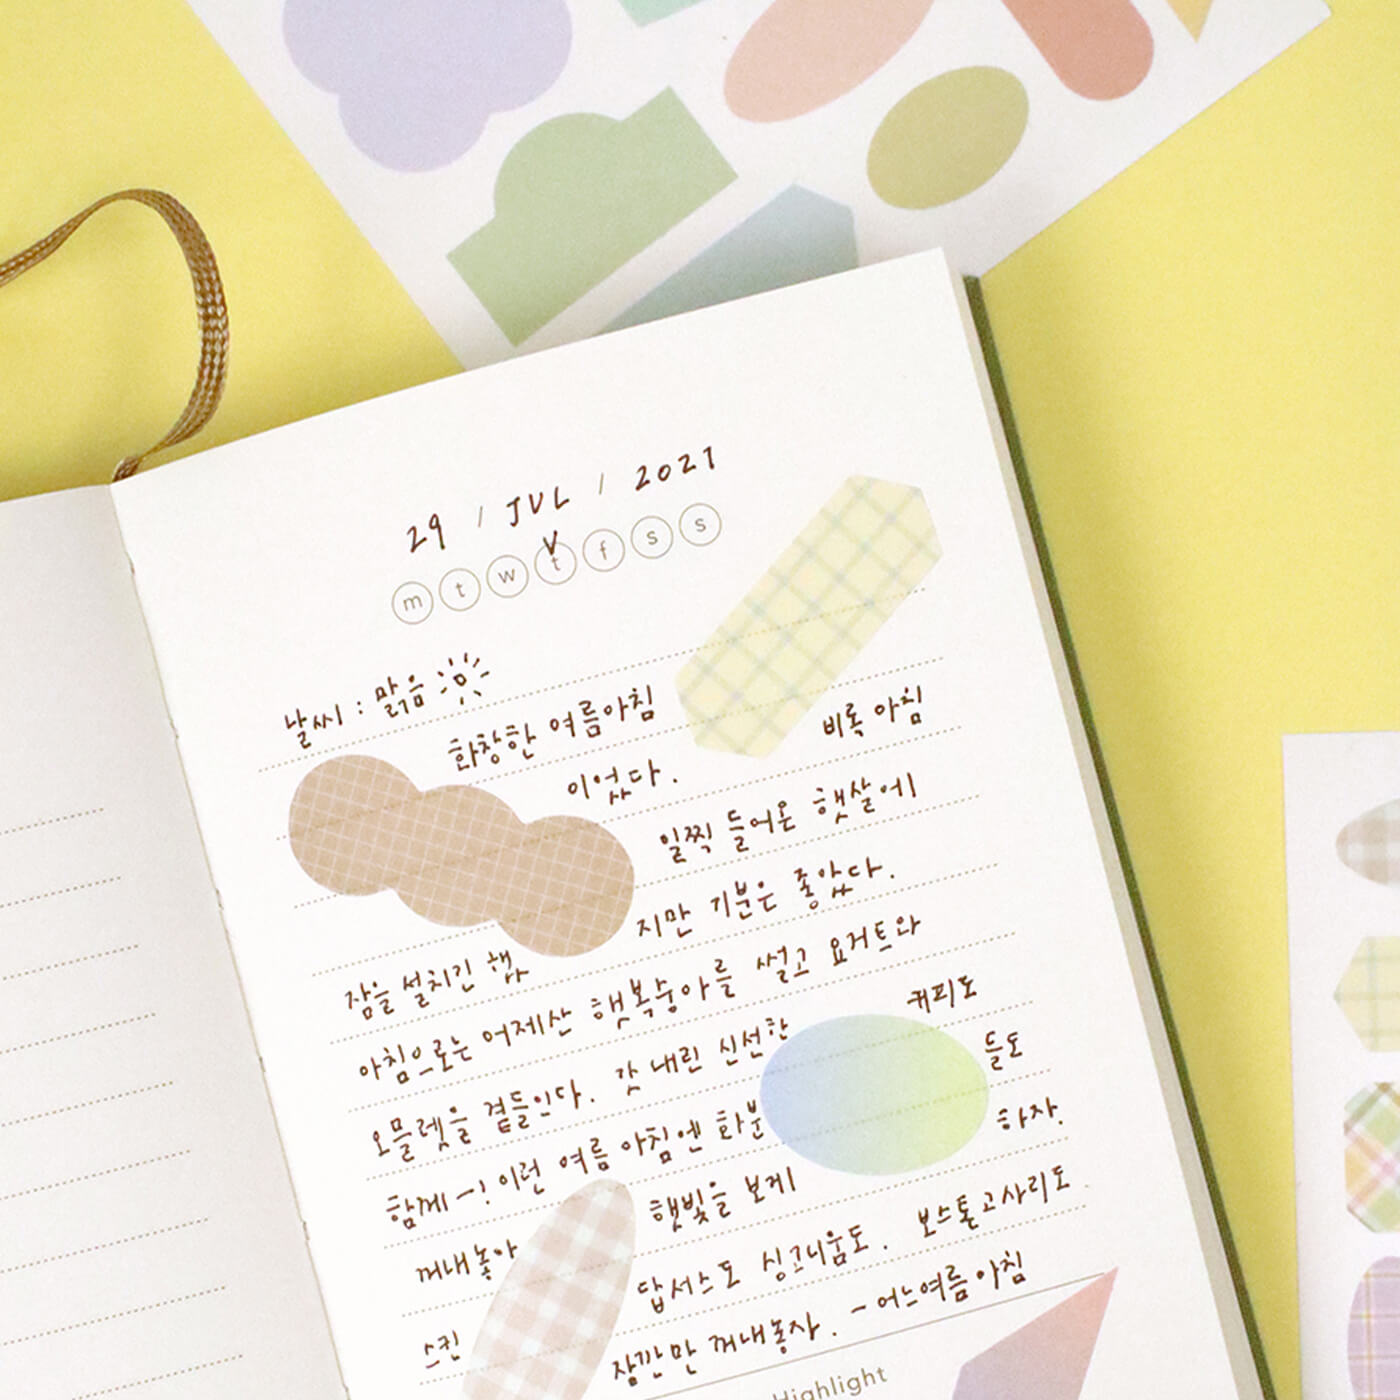 29 / JUL / 2021
m t w t f s s
날씨 : 맑음
화창한 여름아침
이었다. 비록 아침
일찍 들어온 햇살에
잠을 설치긴 했지만 기분은 좋았다.
아침으로는 어제산 햇복숭아를 썰고 요거트와
오믈렛을 곁들인다. 갓 내린 신선한 커피도
함께-! 이런 여름 아침엔 화분들도
꺼내놓아 햇빛을 보게 하자.
스킨답서스도 싱고니움도. 보스톤고사리도
잠깐만 꺼내놓자. - 어느여름 아침
Highlight